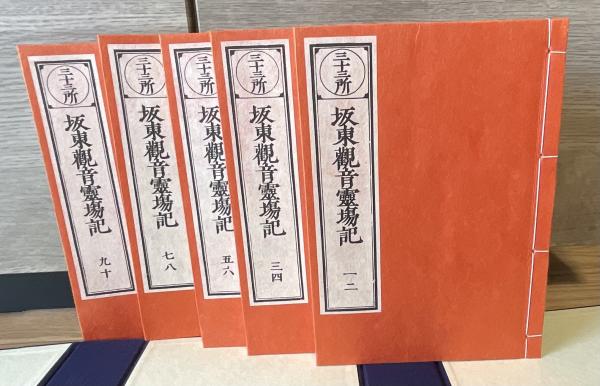 三十三所
坂東觀音靈場記
一二
三十三所
坂東觀音靈場記
三四
三十三所
坂東觀音靈場記
五六
三十三所
坂東觀音靈場記
七八
三十三所
坂東觀音靈場記
九十